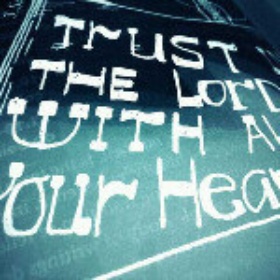 TRUST
THE LORD
WITH Al
Your Hear